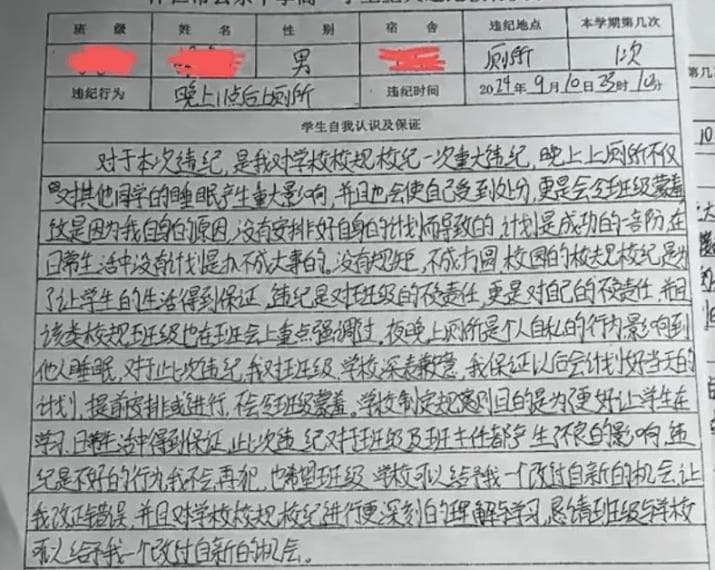 班 级 姓 名 性 别 宿 舍 违纪地点 本学期第几次
男 厕所 1次
违纪行为 晚上11点后上厕所 违纪时间 2024年9月10日23时10分
学生自我认识及保证
对于本次违纪,是我对学校校规校纪一次重大违纪,晚上上厕所不仅
对其他同学的睡眠产生重大影响,并且也会使自己受到处分,更是会令班级蒙羞
这是因为我自身的原因,没有安排好自身的计划而导致的,计划是成功的一部分,在
日常生活中没有计划是办不成大事的。没有规矩,不成方圆,校园的校规校纪是为
了让学生的生活得到保证,违纪是对班级的不负责任,更是对自己的不负责任,并且
该类校规班级也在班会上重点强调过,夜晚上厕所是个人自私的行为,影响到
他人睡眠,对于此次违纪,我对班级、学校深表歉意,我保证以后会计划好当天的
计划,提前安排或进行,不会令班级蒙羞。学校制定规则目的是为了更好让学生在
学习、日常生活中得到保证,此次违纪对于班级及班主任都产生了不良的影响,违
纪是不好的行为,我不会再犯,也希望班级、学校可以给予我一个改过自新的机会,让
我改正错误,并且对学校校规校纪进行更深刻的理解与学习,恳请班级与学校
可以给予我一个改过自新的机会。
第几
10